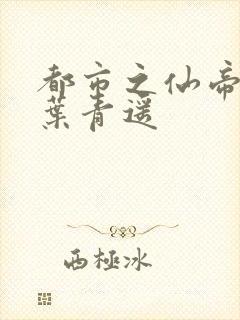 都市之仙帝
葉青遥
西極冰